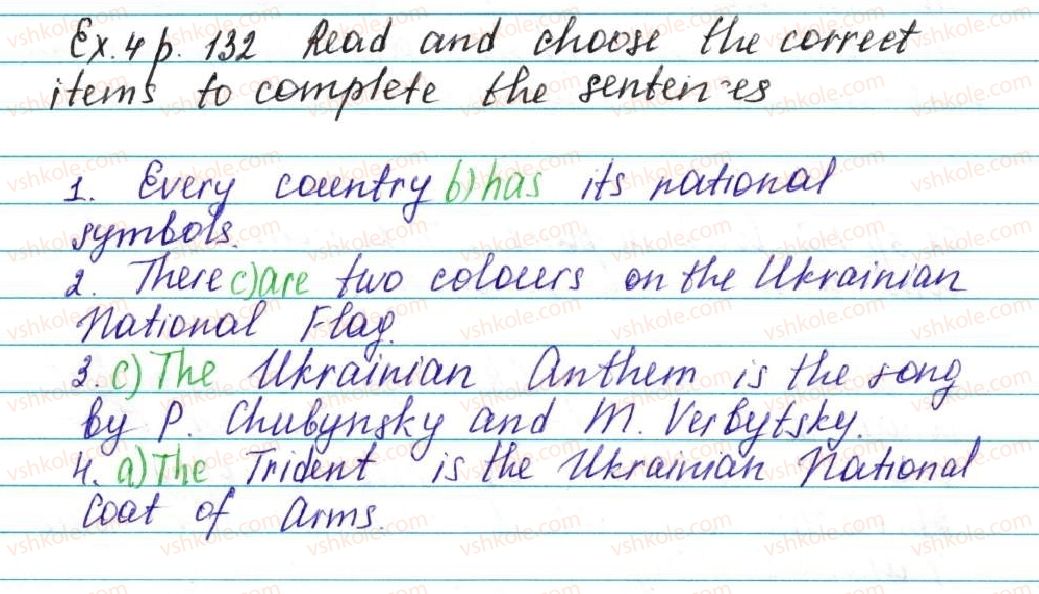 Ex. 4 p. 132 Read and choose the correct
items to complete the sentences
1. Every country b) has its national
symbols.
2. There c) are two colours on the Ukrainian
National Flag.
3. c) The Ukrainian Anthem is the song
by P. Chubynsky and M. Verbytsky.
4. a) The Trident is the Ukrainian National
Coat of Arms.